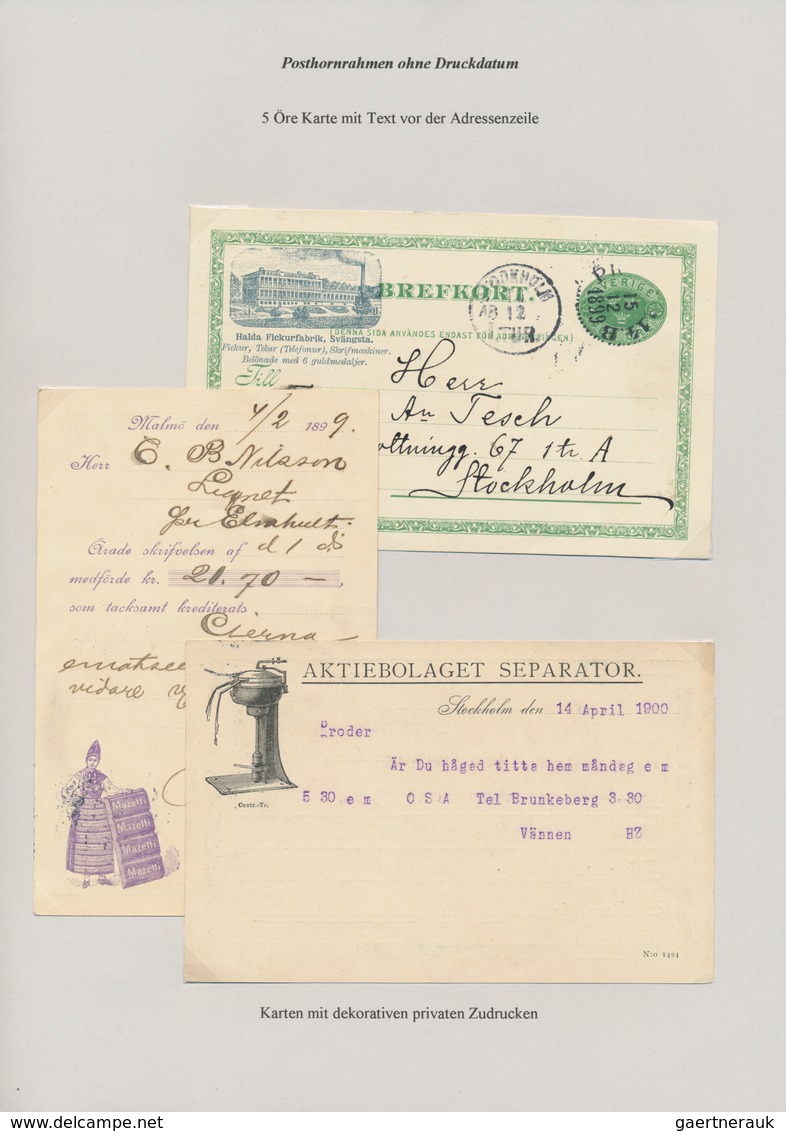 Posthornrahmen ohne Druckdatum
5 Öre Karte mit Text vor der Adressenzeile
BREFKORT.
(DENNA SIDA ANVÄNDES ENDAST FÖR ADRESS
Halda Fickurfabrik, Svängsta.
Fickur, Telur (Telefonur), Skrifmaskiner.
Belönade med 6 guldmedaljer.
Till
Herr
Au Tesch
67 1 tr. A
Stockholm
SVERIGE
15
12
1899
AB 12
TUR
Malmö den 4/2 1899.
Herr C. B Nilsson
per Elmhult.
Ärade skrifvelsen af d 1 ds
medförde kr. 20.70 —,
som tacksamt krediterats
vidare
Mazetti
Mazetti
Mazetti
Mazetti
AKTIEBOLAGET SEPARATOR.
Stockholm den 14 April 1900
Broder
Är Du hågad titta hem måndag e m
5 30 e m O S A Tel Brunkeberg 3 30
Vännen HZ
Centr.-Tr.
N:o 1424
Karten mit dekorativen privaten Zudrucken
gaertnerauk